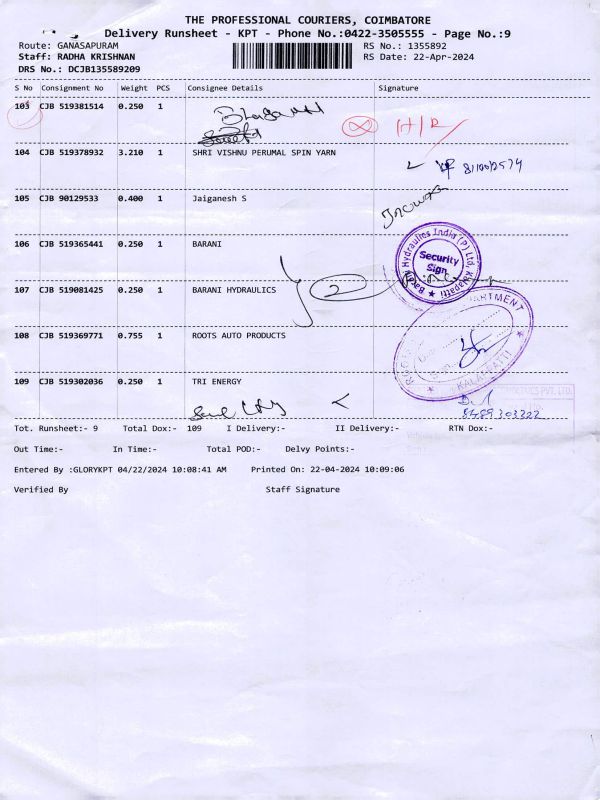 THE PROFESSIONAL COURIERS, COIMBATORE
Delivery Runsheet - KPT - Phone No.:0422-3505555 - Page No.:9
Route: GANASAPURAM
RS No.: 1355892
Staff: RADHA KRISHNAN
RS Date: 22-Apr-2024
DRS No.: DCJB135589209
S No Consignment No Weight PCS Consignee Details Signature
103 CJB 519381514 0.250 1
104 CJB 519378932 3.210 1 SHRI VISHNU PERUMAL SPIN YARN
105 CJB 90129533 0.400 1 Jaiganesh S
106 CJB 519365441 0.250 1 BARANI
Barani Hydraulics India (P) Ltd, Kalapatti
Security
Sign
107 CJB 519081425 0.250 1 BARANI HYDRAULICS
2
108 CJB 519369771 0.755 1 ROOTS AUTO PRODUCTS
KALAPATTI
109 CJB 519302036 0.250 1 TRI ENERGY
8489303322
Tot. Runsheet:- 9 Total Dox:- 109 I Delivery:- II Delivery:- RTN Dox:-
Out Time:- In Time:- Total POD:- Delvy Points:-
Entered By :GLORYKPT 04/22/2024 10:08:41 AM Printed On: 22-04-2024 10:09:06
Verified By Staff Signature